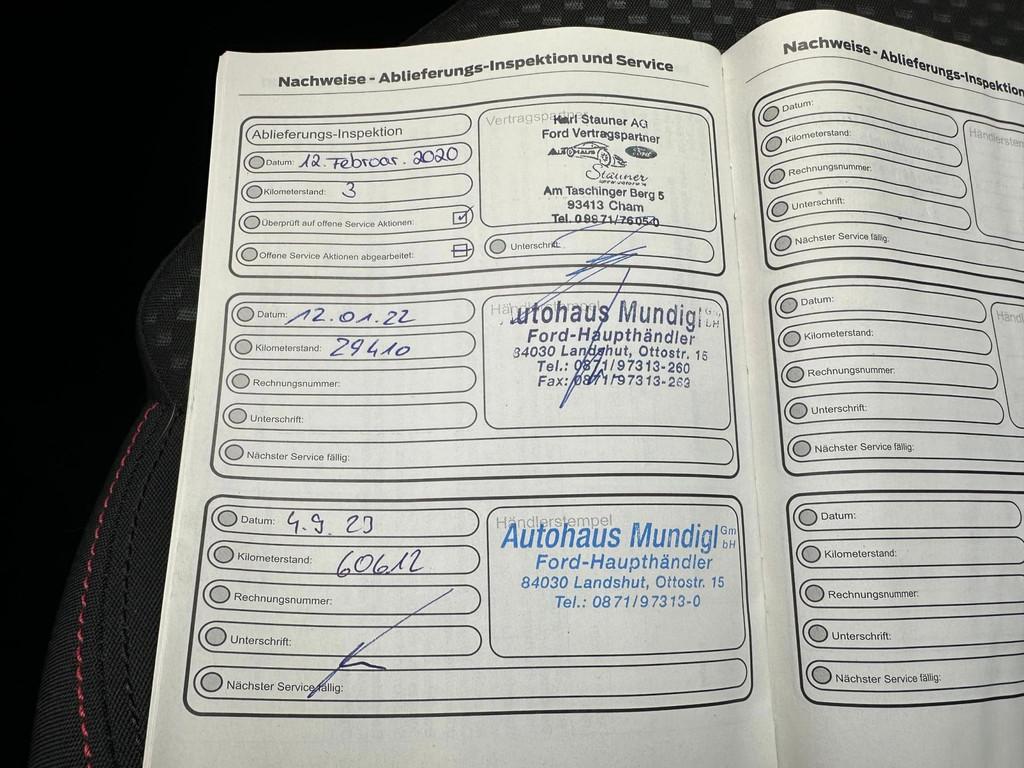 Nachweise - Ablieferungs-Inspektion und Service
Ablieferungs-Inspektion
Datum: 12. Februar. 2020
Kilometerstand: 3
Überprüft auf offene Service Aktionen:
Offene Service Aktionen abgearbeitet:
Karl Stauner AG
Ford Vertragspartner
AUTOHAUS
Ford
Stauner
Am Taschinger Berg 5
93413 Cham
Tel. 09971/7605-0
Unterschrift:
Datum: 12.01.22
Kilometerstand: 29410
Rechnungsnummer:
Unterschrift:
Nächster Service fällig:
Händlerstempel
Autohaus Mundigl GmbH
Ford-Haupthändler
84030 Landshut, Ottostr. 15
Tel.: 0871/97313-260
Fax: 0871/97313-263
Datum: 4.9.23
Kilometerstand: 60612
Rechnungsnummer:
Unterschrift:
Nächster Service fällig:
Händlerstempel
Autohaus Mundigl GmbH
Ford-Haupthändler
84030 Landshut, Ottostr. 15
Tel.: 0871/97313-0
Nachweise - Ablieferungs-Inspektion
Datum:
Kilometerstand:
Rechnungsnummer:
Unterschrift:
Nächster Service fällig:
Händlerstem
Datum:
Kilometerstand:
Rechnungsnummer:
Unterschrift:
Nächster Service fällig:
Händl
Datum:
Kilometerstand:
Rechnungsnummer:
Unterschrift:
Nächster Service fällig: